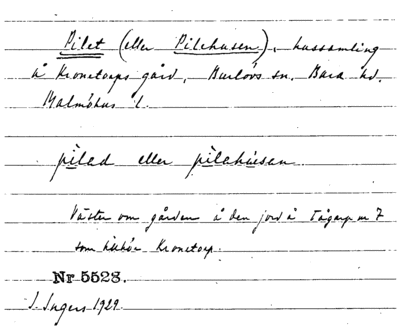 Pilet (eller Pilehusen), hussamling
å Kronetorps gård, Burlövs sn. Bara hd.
Malmöhus l.
pilad eller pilahúsen
Väster om gården å den jord å Tågarp nr 7
som tillhör Kronetorp.
Nr 5528.
I. Ingers 1929.